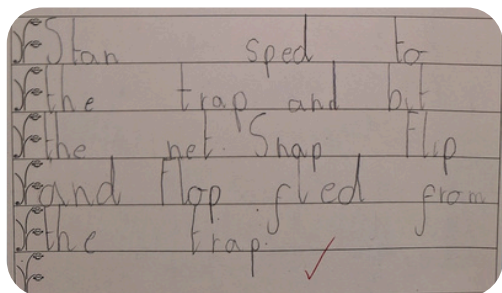 Stan sped to
the trap and bit
the net. Snap Flip
and Flop fled from
the trap.